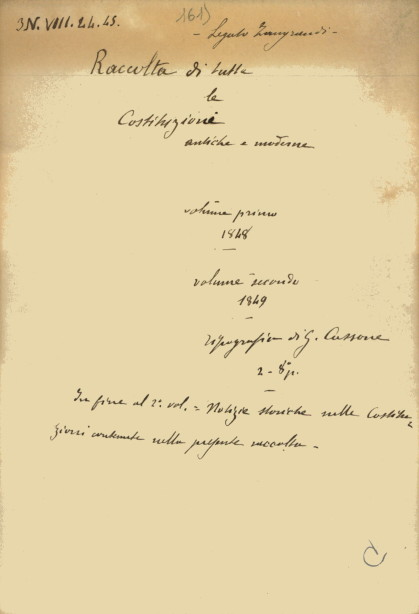 3N. VIII. 24. 45.
161)
- Legato Zangrandi -
Raccolta di tutte
le
Costituzioni
antiche e moderne
volume primo
1848
volume secondo
1849
Tipografia di G. Cassone
2 - 8° p.
In fine al 2° vol. = Notizie storiche nelle Costitu=
zioni contenute nella presente raccolta -